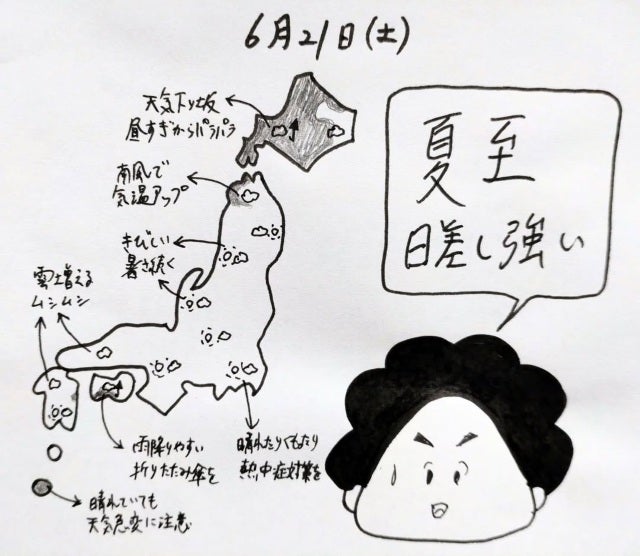 6月21日(土)
夏至
日差し強い
天気下り坂
昼すぎからパラパラ
南風で
気温アップ
きびしい
暑さ続く
雲増える
ムシムシ
雨降りやすい
折りたたみ傘を
晴れたりくもたり
熱中症対策を
晴れていても
天気急変に注意